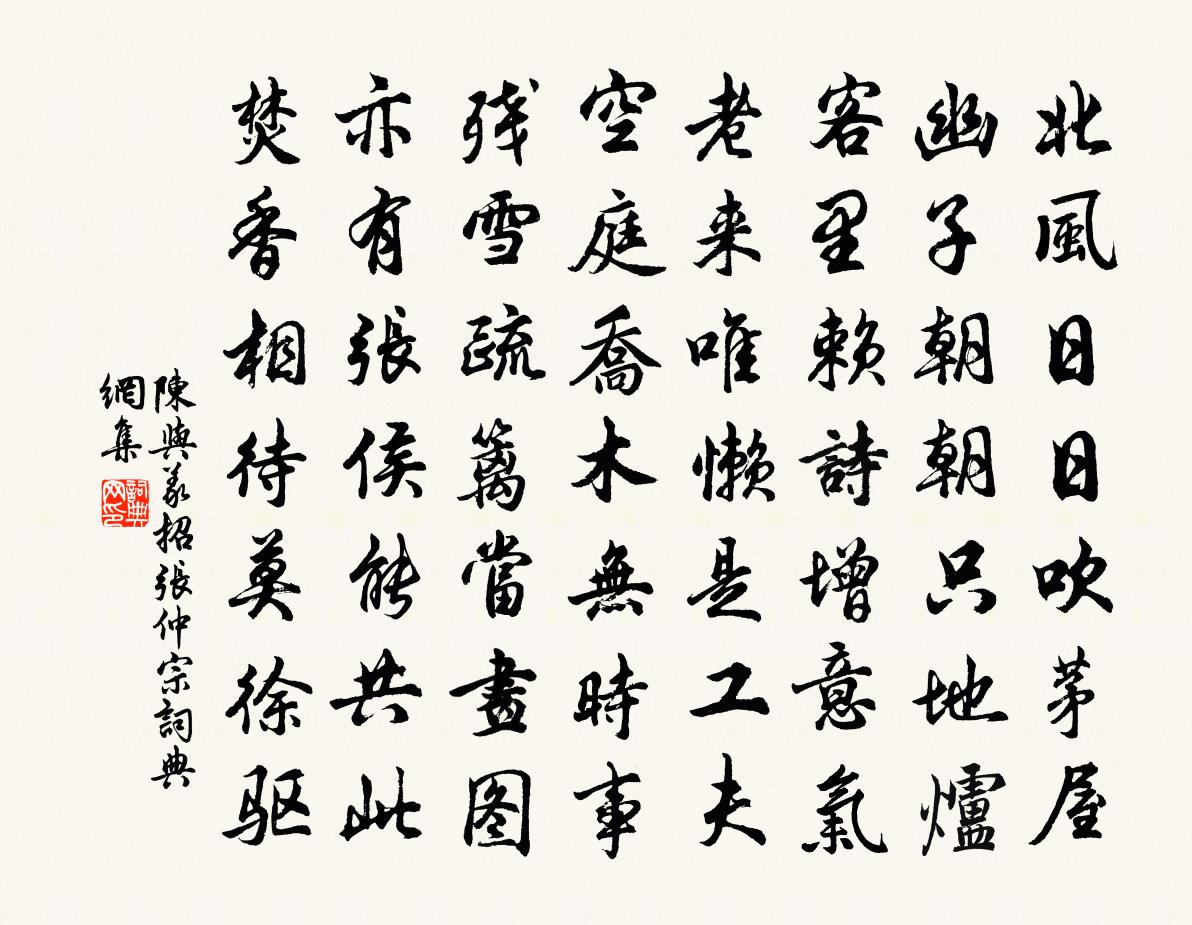 北風日日吹茅屋
幽子朝朝只地爐
客里賴詩增意氣
老来唯懶是工夫
空庭喬木無時事
殘雪疏篱當畫图
亦有張侯能共此
焚香相待莫徐驱
陳與義招張仲宗詞典
網集
詞典
网印